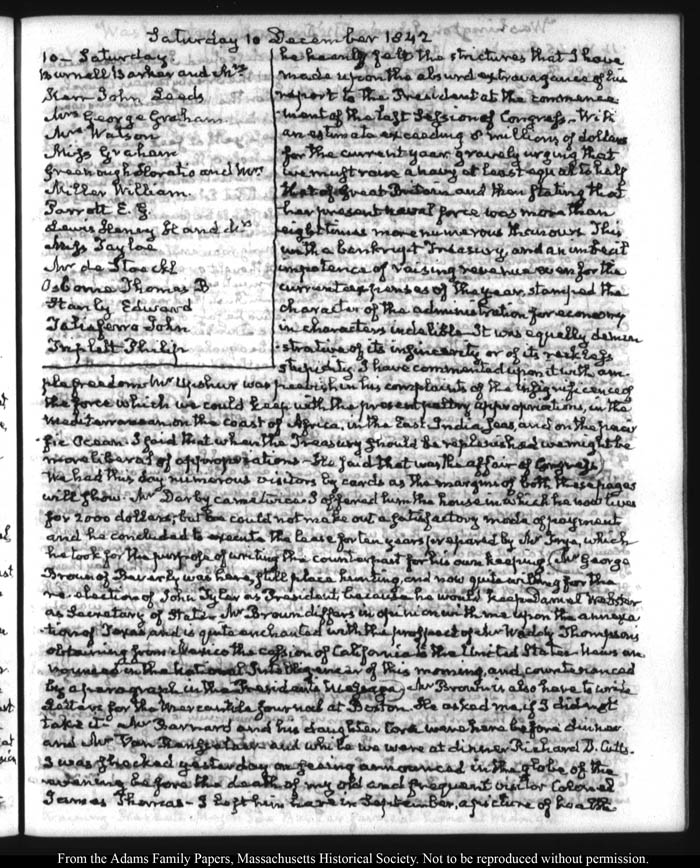 Saturday 10 December 1842
10 – Saturday.
Burnell Barker and Mrs
Kerr John Leeds
Mrs George Graham
Mrs Watson
Miss Graham
Greenough Horatio and Mrs.
Miller William.
Parrott E. G.
Lewis Henry H and
Miss Tayloe
Mr de Stoeckl
Osborne Thomas B
Stanly Edward
Taliaferro John
Triplett Philip
he keenly felt the strictures that I have
made upon the absurd extravagance of his
report to the President at the commence
ment of the last Session of Congress – With
an estimate exceeding 8 millions of dollars
for the current year gravely urging that
we must raise a navy at least equal to half
that of Great Britain and then stating that
her present naval force was more than
eight times more numerous than ours. This
with a bankrupt Treasury, and an
impotence of raising revenue even for the
current expenses of the year, stamped the
character of the administration for economy
in characters indelible – It was equally demon
strative of its insincerity or of its reckless
stupidity. I have commented upon it with am-
ple freedom. Mr Upshur was peevish in his complaints of the insignificance of
the force which we could keep with the present paltry appropriations, in the
Mediterranean on the coast of Africa, in the East India Seas, and on the paci
fic Ocean. I said that when the Treasury should be replenished we might be
more liberal of appropriations – He said that was the affair of Congress.
We had this day numerous visitors by cards as the margins of both these pages
will show – Mr Darby came twice. I offered him the house in which he now lives
for 2000 dollars; but he could not make out a satisfactory mode of payment
and he concluded to execute the lease for ten years prepared by Mr Frye, which
he took for the purpose of writing the counterpart for his own keeping. Mr George
Brown of Beverly was here, still place hunting, and now quite willing for the
re-election of John Tyler as President because he would keep Daniel Webster
as Secretary of State. Mr Brown differs in opinion with me upon the annexa
tion of Texas and is quite enchanted with the prospect of Mr Waddy Thompson's
obtaining from Mexico the cession of California to the United States – News an
nounced in the National Intelligencer of this morning, and countenanced
by a paragraph in the President's Message. Mr Brown is also here to write
letters for the Mercantile Journal at Boston. He asked me, if I did not
take it. Mr Barnard and his daughter Cora were here before dinner
and Mr Van Rensselaer and while we were at dinner Richard D. Cutts –
I was shocked yesterday on seeing announced in the Globe of the
evening before the death of my old and frequent visitor Colonel
James Thomas – I left him here in September, a picture of health
From the Adams Family Papers, Massachusetts Historical Society. Not to be reproduced without permission.